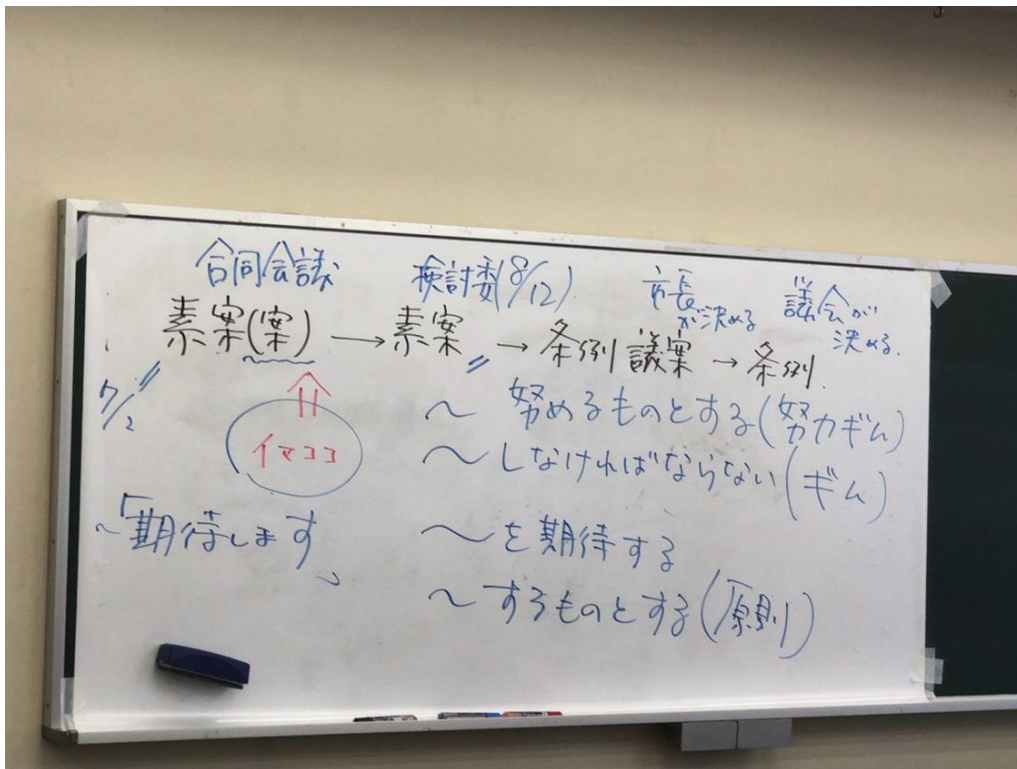 合同会議 検討委(8/12) 市長が決める 議会が決める.
素案(案) → 素案 → 条例議案 → 条例.
7/2
イマココ
～「期待します」
～ 努めるものとする(努力ギム)
～しなければならない(ギム)
～を期待する
～するものとする(原則)